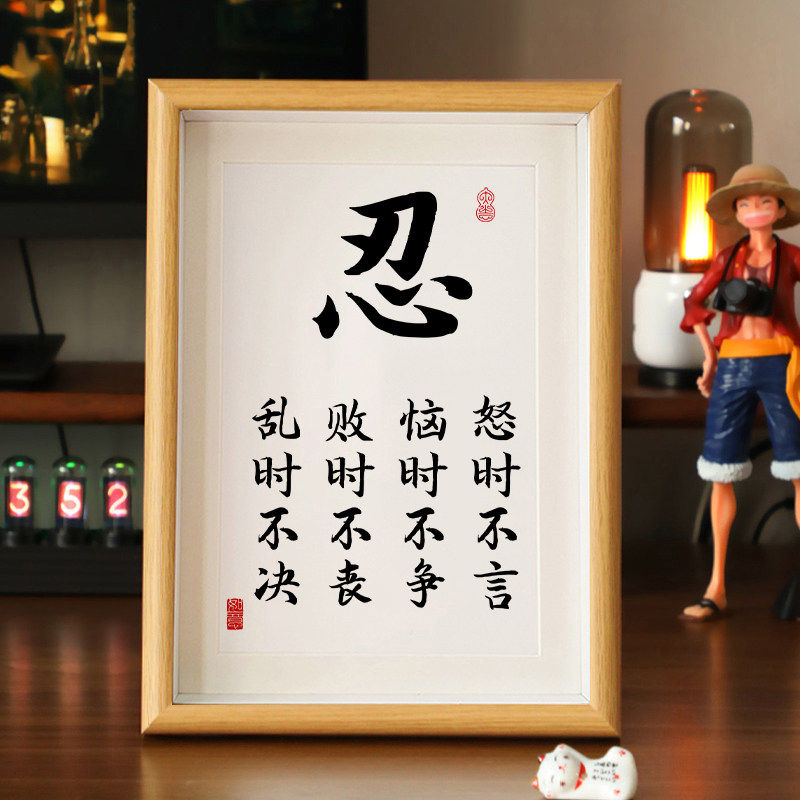 忍
怒时不言
恼时不争
败时不丧
乱时不决
如意
352